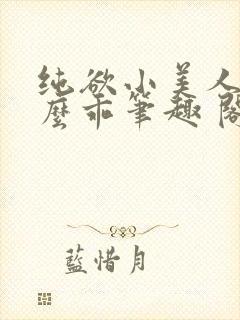 纯欲小美人
麽乖笔趣阁
藍惜月